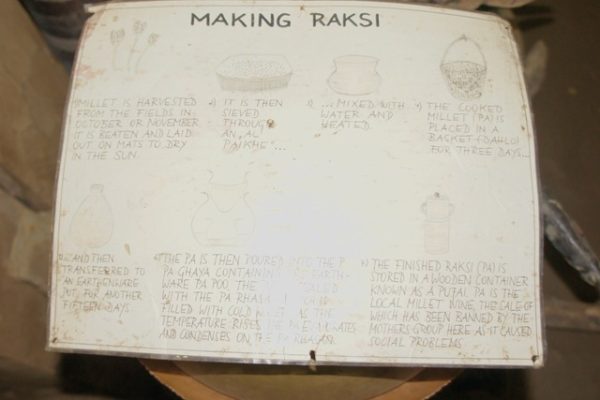 MAKING RAKSI
1) MILLET IS HARVESTED
FROM THE FIELDS IN
OCTOBER OR NOVEMBER
IT IS BEATEN AND LAID
OUT ON MATS TO DRY
IN THE SUN.
2) IT IS THEN
SIEVED
THROUGH
AN
3) ...MIXED WITH
WATER AND
HEATED.
4) THE COOKED
MILLET (PA) IS
PLACED IN A
BASKET (DAHLO)
FOR THREE DAYS...
5) AND THEN
TRANSFERRED TO
AN EARTHENWARE
POT, FOR ANOTHER
FIFTEEN DAYS
6) THE PA IS THEN POURED INTO THE
PA GHAYA CONTAINING EARTH-
WARE PA POO. THE
WITH THE PA
FILLED WITH COLD AS THE
TEMPERATURE RISES THE
AND CONDENSES ON THE
7) THE FINISHED RAKSI (PA) IS
STORED IN A WOODEN CONTAINER
KNOWN AS A PUTAI. PA IS THE
LOCAL MILLET WINE, THE SALE OF
WHICH HAS BEEN BANNED BY THE
MOTHERS GROUP HERE AS IT CAUSED
SOCIAL PROBLEMS